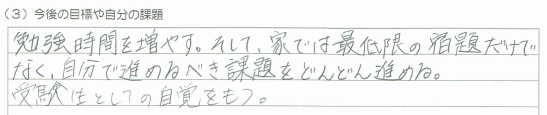 （3）今後の目標や自分の課題
勉強時間を増やす。そして、家では最低限の宿題だけで
なく、自分で進めるべき課題をどんどん進める。
受験生としての自覚をもつ。